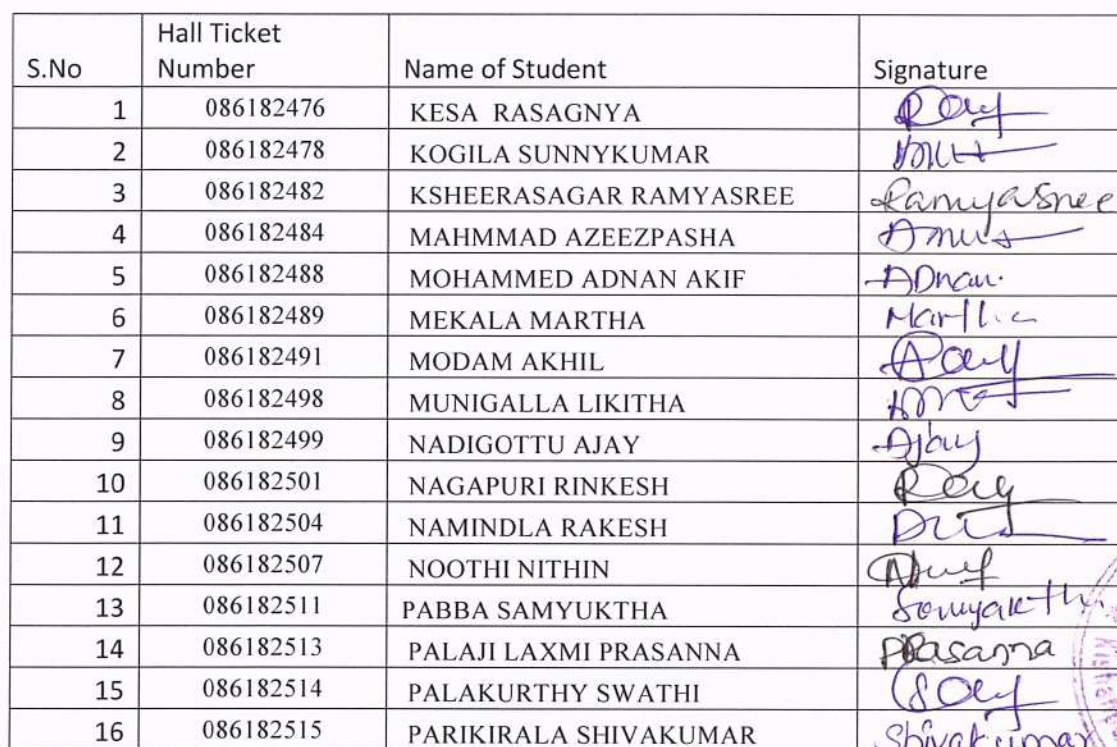 S.No Hall Ticket Number Name of Student Signature
1 086182476 KESA RASAGNYA
2 086182478 KOGILA SUNNYKUMAR
3 086182482 KSHEERASAGAR RAMYASREE Ramyasree
4 086182484 MAHMMAD AZEEZPASHA
5 086182488 MOHAMMED ADNAN AKIF ADnan.
6 086182489 MEKALA MARTHA Martha
7 086182491 MODAM AKHIL
8 086182498 MUNIGALLA LIKITHA
9 086182499 NADIGOTTU AJAY Ajay
10 086182501 NAGAPURI RINKESH
11 086182504 NAMINDLA RAKESH
12 086182507 NOOTHI NITHIN
13 086182511 PABBA SAMYUKTHA
14 086182513 PALAJI LAXMI PRASANNA PRasanna
15 086182514 PALAKURTHY SWATHI
16 086182515 PARIKIRALA SHIVAKUMAR Shivakumar